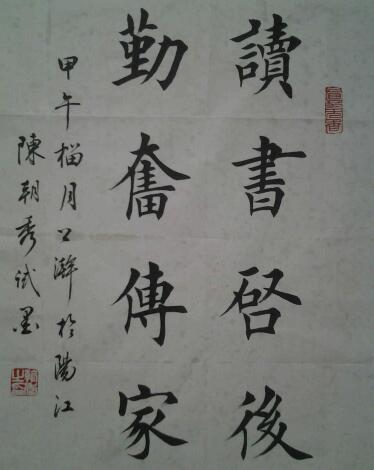 讀書啓後
勤奮傳家
甲午榴月上澣於陽江
陳朝秀試墨